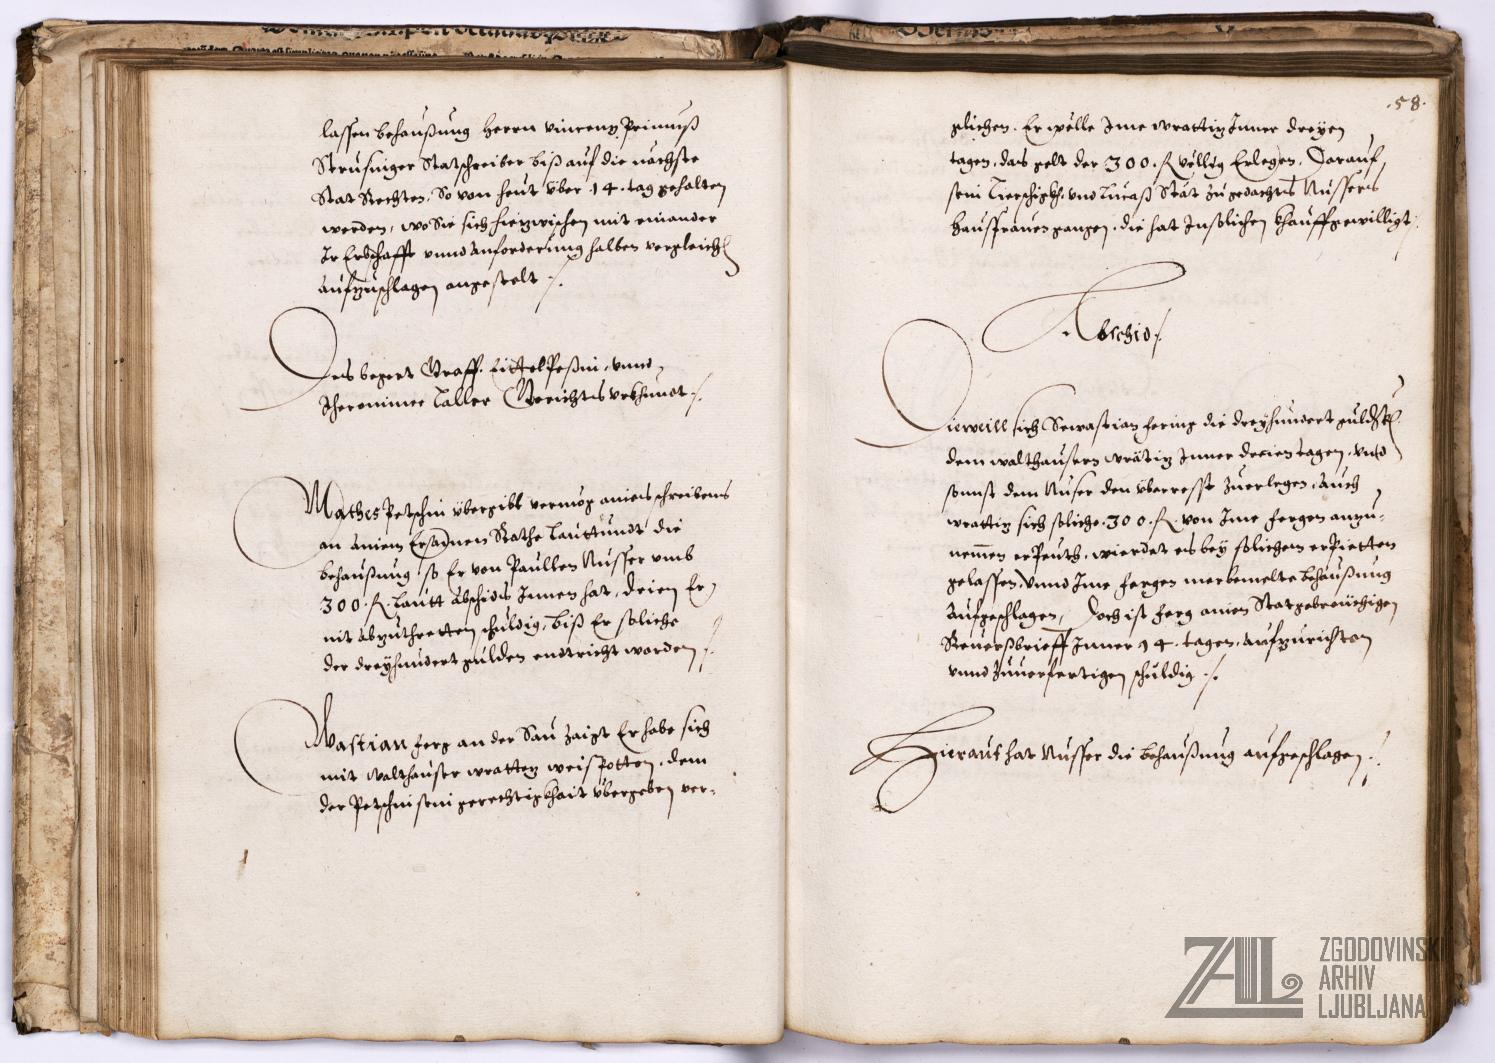 lassen behaußung herrn vincenz Primuß
Strusniger Statschreiber biß auf die nachste
Stat Rechten, So von heut über 14. tag gehalten
werden, wo Sie sich hiezwischen mit einander
Ir Erbschafft vnnd anforderung halben vergleichen
aufzuschlagen angestelt ./.
Des begert Graff. vnnd
Jheronimee Taller Gerichts vrkhundt ./.
Mathes Petschni übergibt vermög aines schreibens
an ainem Ersamen Rathe lauttundt die
behaußung so Er von Paullen Nusser vmb
300. fl. lautt abschids Innen hat, deren Er
nit abzuthretten schuldig, biß Er soliche
der dreyhundert gulden endtricht worden ./.
Wastian ferg an der Sau zaigt Er habe sich
mit walthauser wratten dem
der Petschni seni gerechtigkhait übergeben ver-
.58.
glichen. Er wölle Ime wrattin Inner dreyen
tagen, das gelt der 300. fl völlig Erlegen, Darauf
seni vnd Lucaß Stät zugedachts Nussers
haussfrauen gangen, die hat In solichen khauff gewilligt ./.
Abschid ./.
Dieweill sich Sewastian fering die dreyhundert
dem walthausern wrätin Inner dreien tagen, vnd
sonnst dem Nuser den überresst zuerlegen, Auch
wrattin sich soliche 300. fl. von Ime fergen anzu-
nemmen erPeuth, wierdet es bey solichem erPietten
gelassen, Vnnd Ime fergen merbemelte behaußung
Aufgeschlagen, Doch ist ferg ainen Statgebreuchigen
Reuersbrieff Inner 14. tagen, Aufzurichten
vnnd Zuuerfertigen schuldig ./.
Hieraus hat Nusser die behaußung aufgeschlagen ./.
ZAL
ZGODOVINSKI
ARHIV
LJUBLJANA